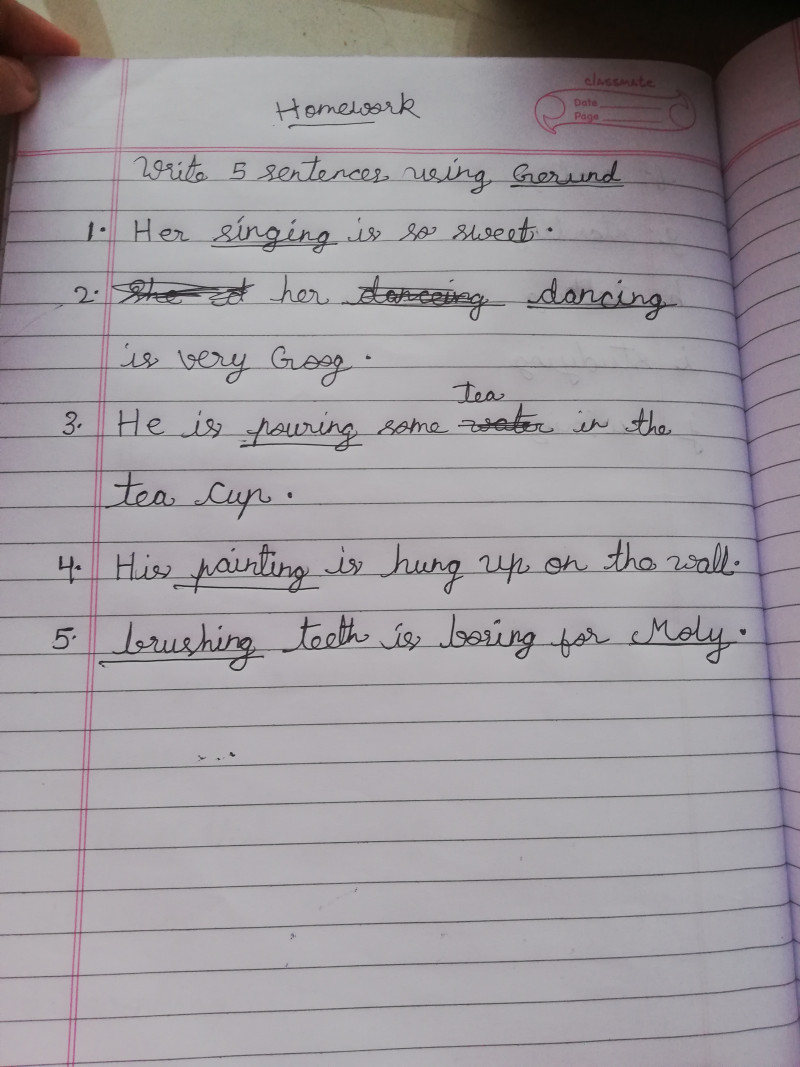 classmate
Date
Page
Homework
Write 5 sentences using Gerund
1. Her singing is so sweet.
2. her dancing
is very Goog.
tea
3. He is pouring some water in the
tea cup.
4. His painting is hung up on the wall.
5. brushing teeth is boring for Moly.